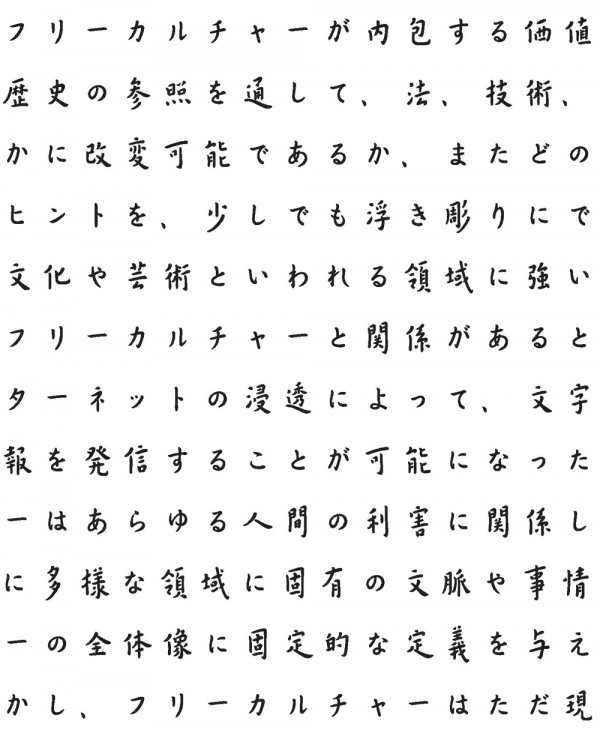 フリーカルチャーが内包する価値
歴史の参照を通して、法、技術、
かに改変可能であるか、またどの
ヒントを、少しでも浮き彫りにで
文化や芸術といわれる領域に強い
フリーカルチャーと関係があると
ターネットの浸透によって、文字
報を発信することが可能になった
ーはあらゆる人間の利害に関係し
に多様な領域に固有の文脈や事情
ーの全体像に固定的な定義を与え
かし、フリーカルチャーはただ現